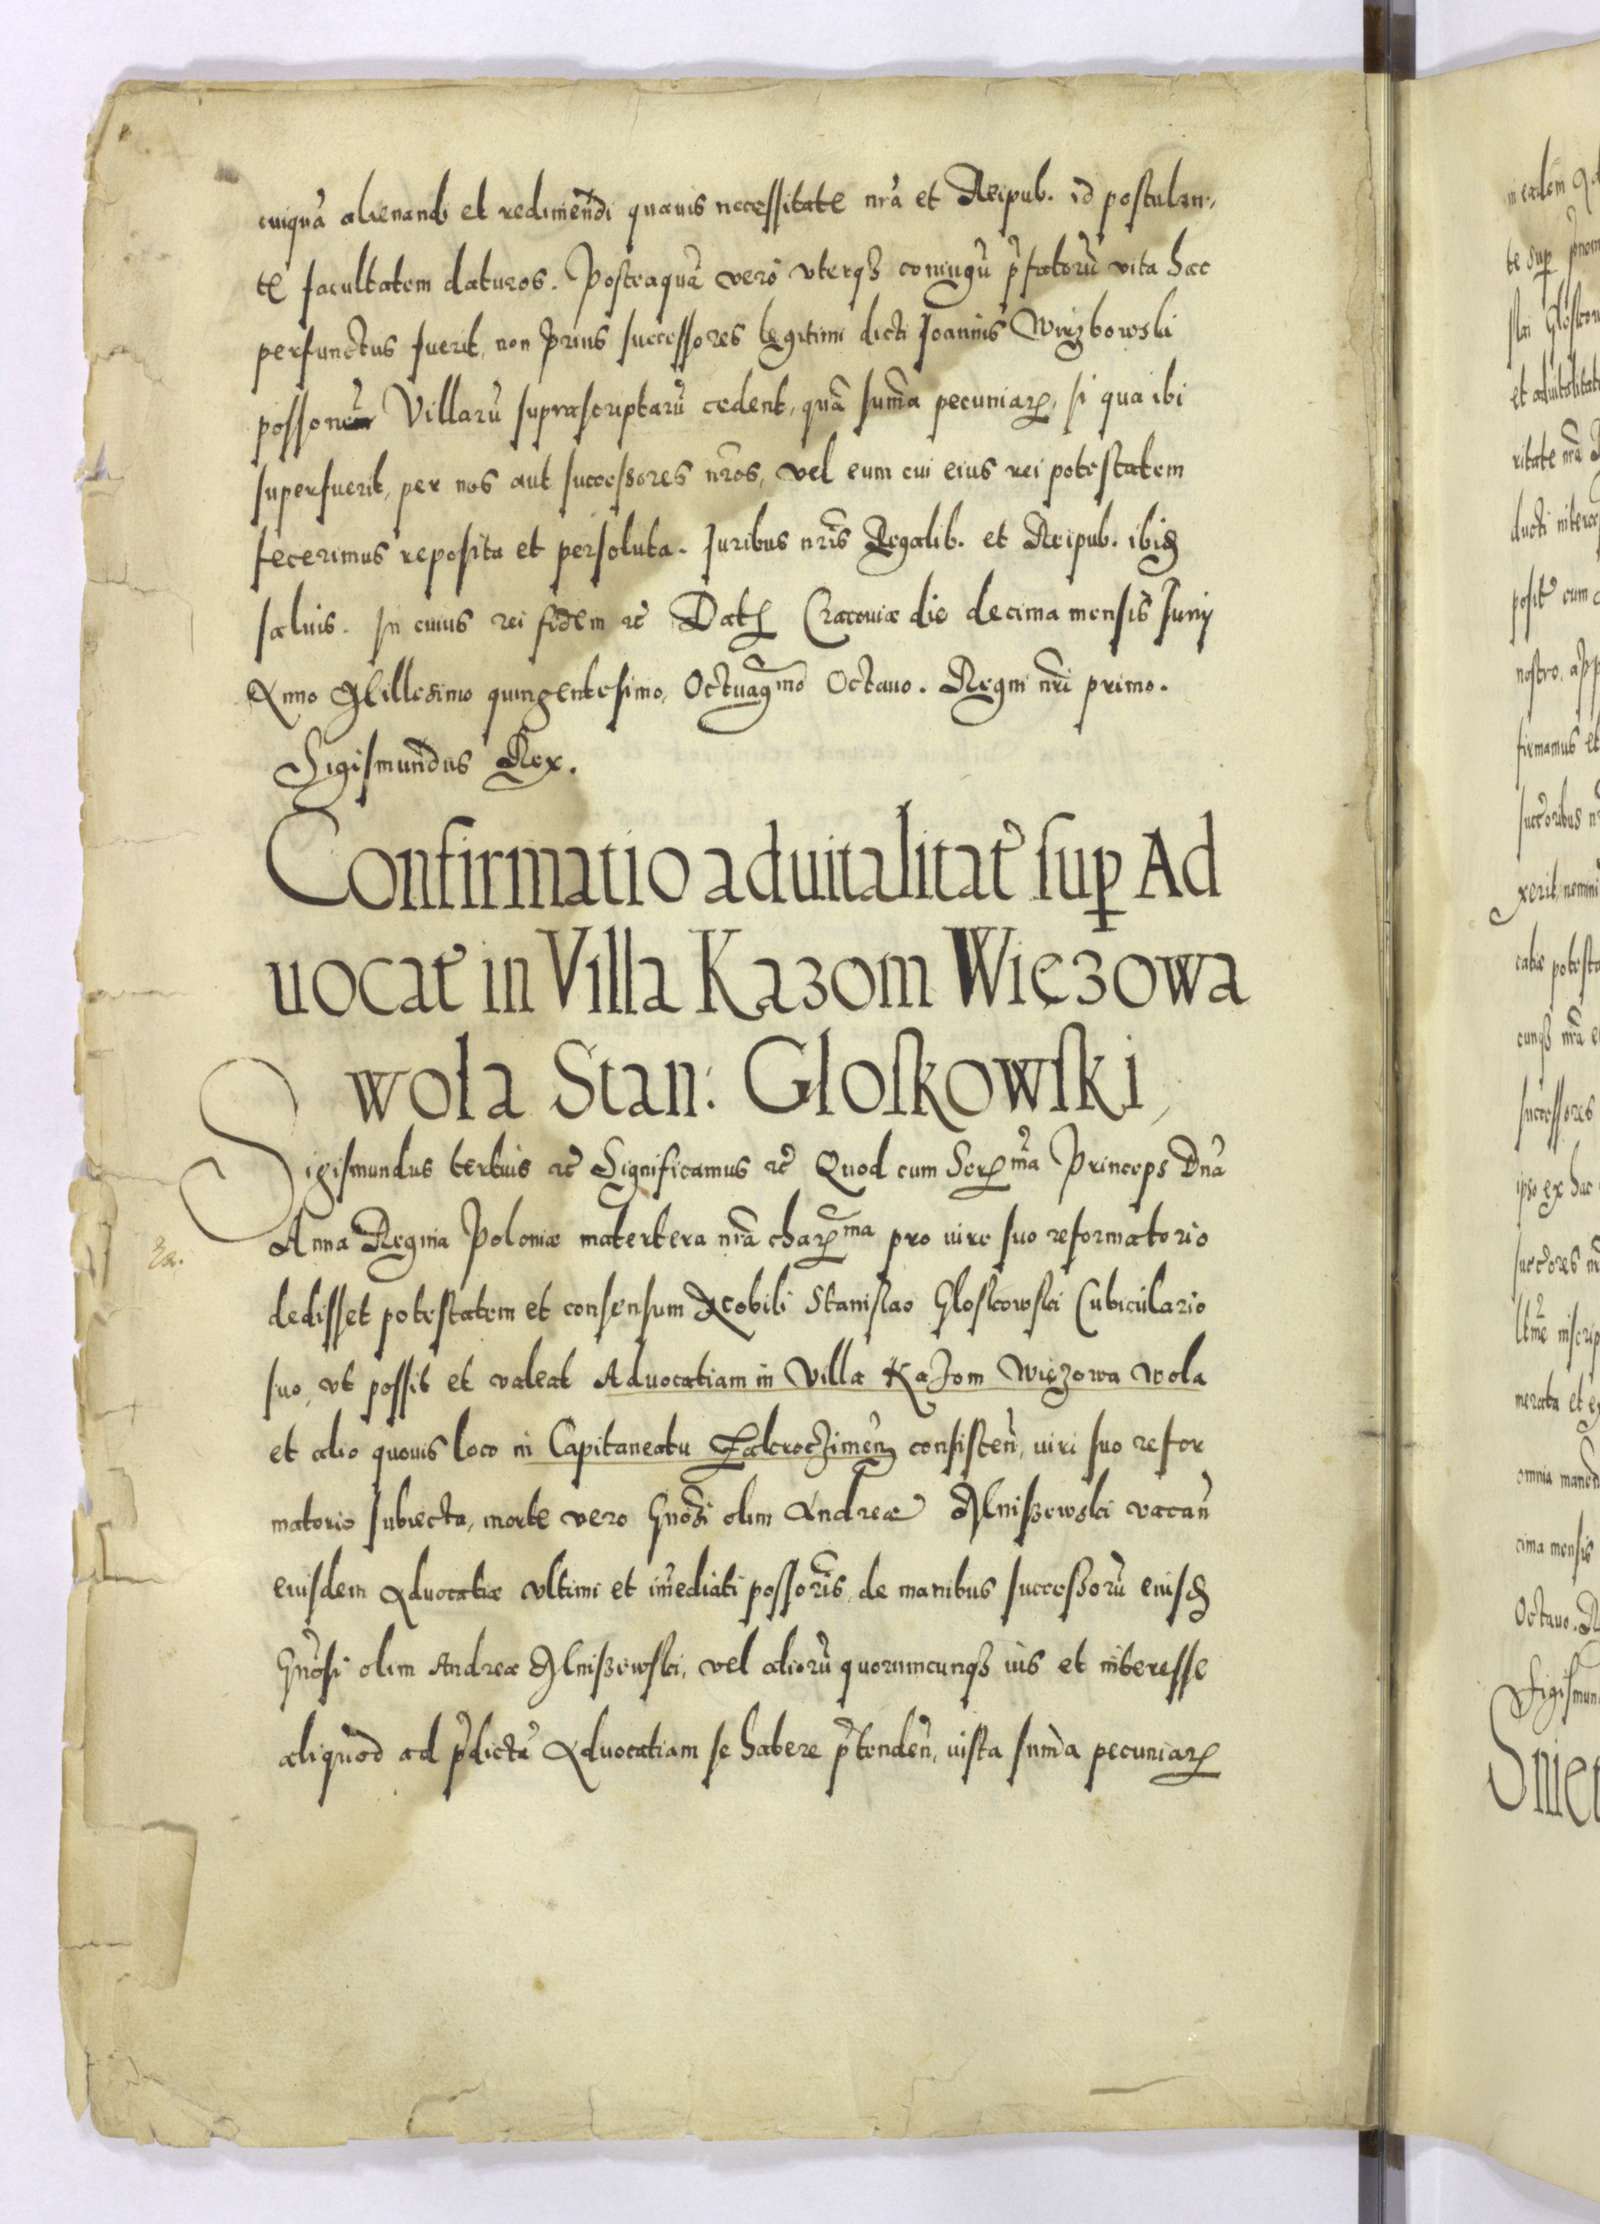 cuiquā alienandi et redimendi quauis necessitate nr̃a et Reipub. id postulan,
te facultatem daturos. Posteaquā vero vterqȝ coniugū p̄fatorū vita hac
perfunctus fuerit, non prius successores legitimi dicti Ioannis Wirzbowski
possonem̃ Villarū suprascriptarū cedent, quā sum̄a pecuniarꝝ, si qua ibi
superfuerit, per nos aut successores nr̃os, vel eum cui eius rei potestatem
fecerimus reposita et persoluta. Iuribus nr̃is Regalib. et Reipub. ibiđ
saluis. In cuius rei fidem ac̃ Datꝝ Cracouiæ die decima mensis Iunij
Anno Millesimo quingentesimo, Octuagmo Octauo. Regni nr̃i primo.
Sigismundus Rex.
Confirmatio aduitalitat̃ suꝑ Ad
uocat̃ in Villa Kazom Więzowa
wola Stan: Gloskowski
Sigismundus tertius ac̃ Significamus ac̃ Quod cum Serꝝma Princeps Dn̄a
Anna Regina Poloniæ matertera nr̃a charꝝma pro iure suo reformatorio
dedisset potestatem et consensum Nobili Stanislao Gloskowski Cubiculario
suo, vt possit et valeat Aduocatiam in Villa Kazom Więzowa wola
et alio quouis loco in Capitaneatu Zakroczimen̄ consisten̄, iuri suo refor
matorio subiecta, morte vero Gn̄osi olim Andreæ Mniszewski vacan̄
eiusdem Aduocatiæ vltimi et im̄ediati possor̃is, de manibus successorū eiusđ
Gn̄osi olim Andreæ Mniszewski, vel aliorū quorumcunqȝ ius et interesse
aliquod ad p̄dictā Aduocatiam se habere p̄tenden̄, iusta sum̄a pecuniarꝝ